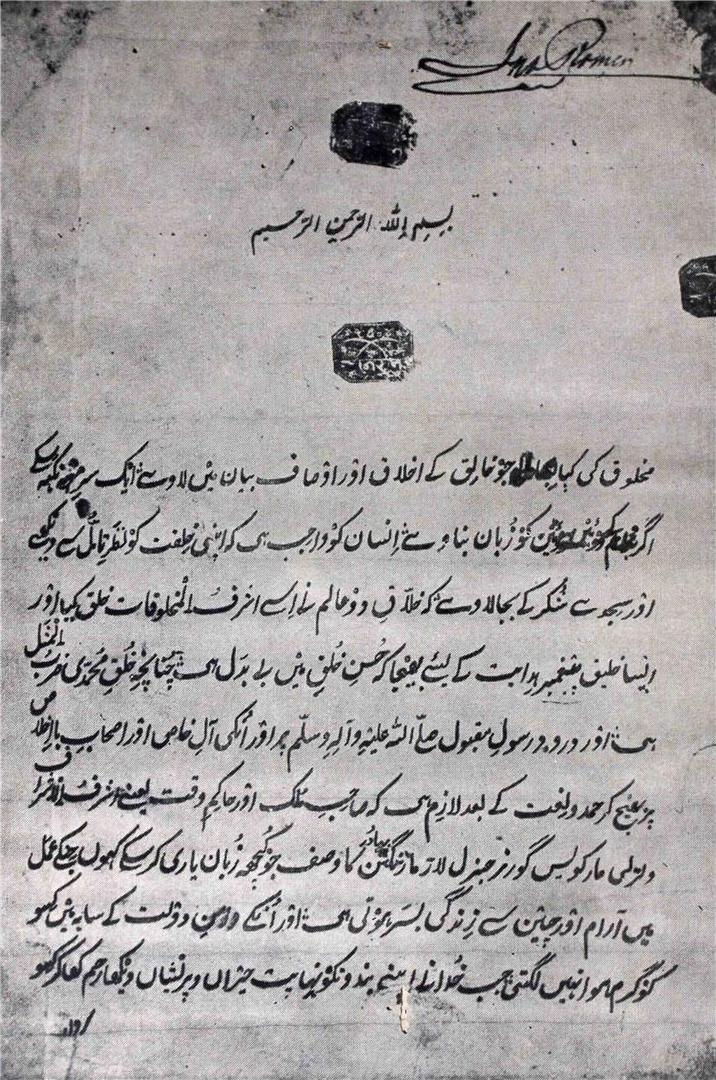 Jno Romer
بسم اللہ الرحمن الرحیم
مخلوق کی کیا جو خالق کے اخلاق اور اوصاف بیان میں لاوے ایک سر
اگر زبان بناوے اِنسان کو واجب ہی کہ اپنی خلقت کو نظر تامّل سے دیکھے
اور سجدے شُکر کے بجا لاوے کہ خلّاق دو عالم نے اِسے اشرفُ المخلوقات خلق کیا اور
ایسا خلیق پیغمبر ہدایت کے لیٔے بھیجا کہ حُسنِ خُلق میں بے بدل ہی چنانچہ خُلقِ محمّدی ضربُ المثل
ہی اور درود رسولِ مقبول صلّے اللہ علیہ وآلہ وسلّم پر اور اُنکی آلِ خاص اور اصحاب باِخلاص
پر بھیج کر حمد و نعت کے بعد لازم ہی کہ صاحب مُلک اور حاکمِ وقت یعنے اشرفُ الاشراف
ولزلی مارکولیس گورنر جنرل لارڈ مارنگٹن بہادُر کا وصف جو کُچھ زُبان یاری کر سکے کہوں جِنکے عمل
میں آرام اور چین سے زِندگی بسر ہوتی ہی اور اُنکے دامنِ دولت کے سایہ میں کِسو
کو گرم ہوا نہیں لگتی جب خُدا نے اپنے بندونکو نہایت حیران و پریشاں دیکھا رحم کھا کر